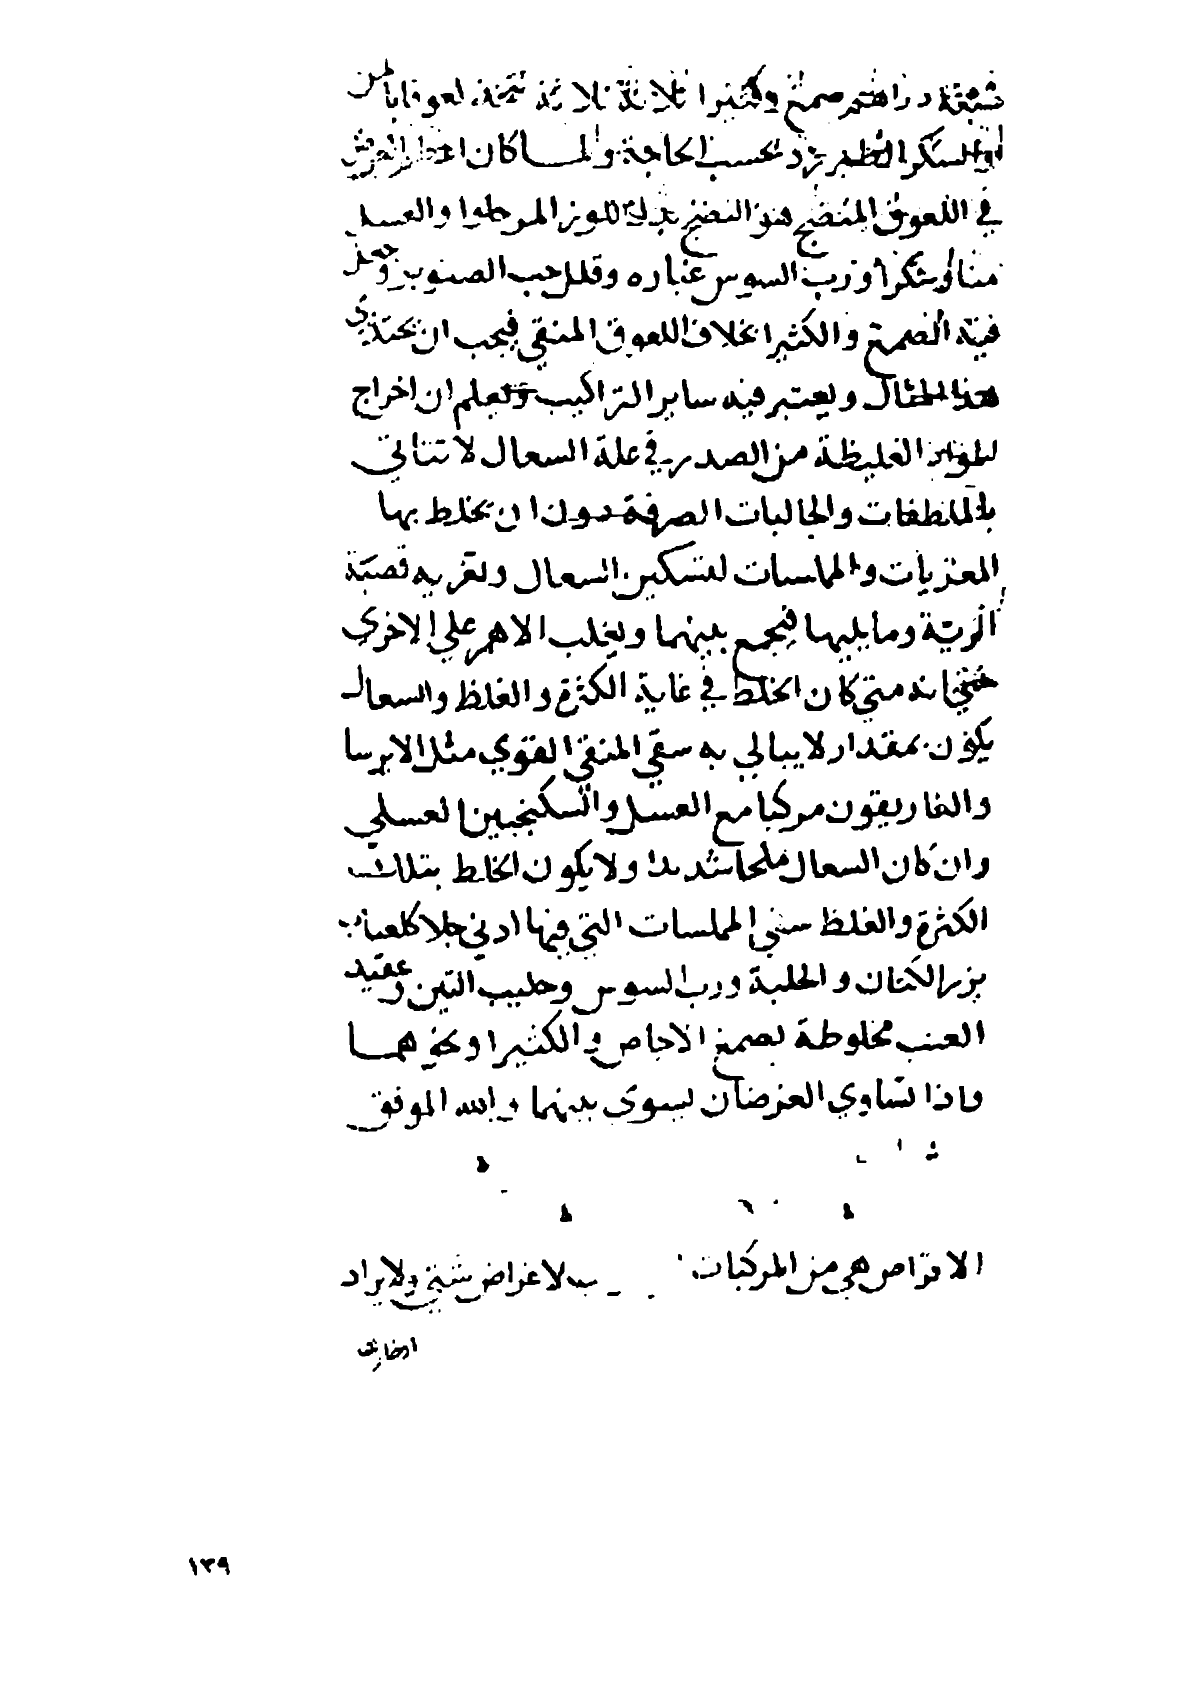 سبعة دراهم صمغ وكثيرا ثلاثة ثلاثة يتخذ لعوقا بالمن
او السكر الطبرزد بحسب الحاجة ولما كان الغرض
في اللعوق المنضج هو النضج بدل اللوز المر حلوا والعسل
منا او سكرا ورب السوس عباره وقلل حب الصنوبر وجعل
فيه الصمغ والكثيرا بخلاف اللعوق المنقي فيجب ان يحتذي
هذا المثال ويعتبر فيه ساير التراكيب وتعلم ان اخراج
المواد الغليظة من الصدر في علة السعال لا تتاتي
بالملطفات والجاليات الصرفة دون ان يخلط بها
المغريات والمملسات لتسكين السعال ولتغريه قصبة
الرية وما يليها فيجمع بينهما ويغلب الاهم على الاخرى
حتى انه متى كان الخلط في غاية الكثرة والغلظ والسعال
يكون بمقدار لا يبالي به سقي المنقي القوي مثل الايرسا
والغاريقون مركبا مع العسل والسكنجبين العسلي
وان كان السعال ملحا شديدا ولا يكون الخلط بتلك
الكثرة والغلظ سقي المملسات التي فيها ادنى جلا كلعاب
بزر الكتان والحلبة ورب السوس وحليب التين وعقيد
العنب مخلوطة بصمغ الاجاص والكثيرا ونحوهما
واذا تساوي الغرضان يسوى بينهما والله الموفق
الاقراص هي من المركبات لاغراض شتى ولايراد
١٣٩